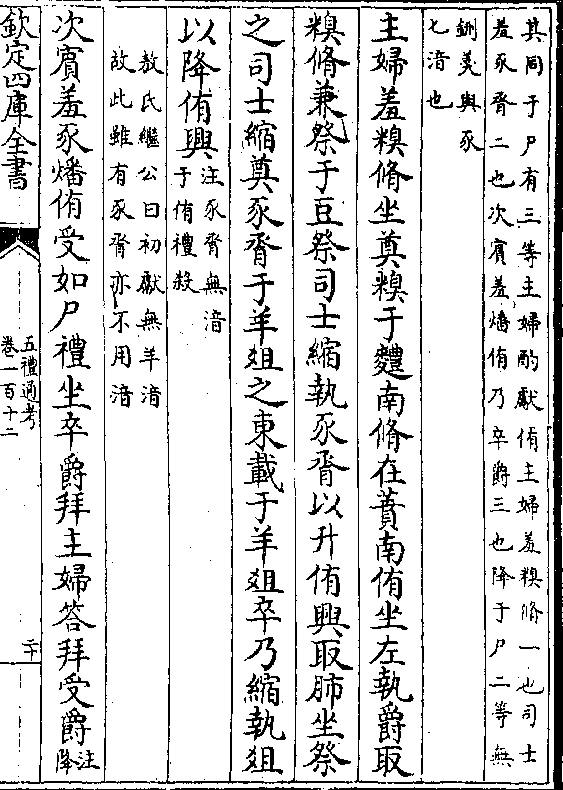 其同于尸有三等主婦酌獻侑主婦羞糗脩一也司士
羞豕脀二也次賓羞燔侑乃卒爵三也降于尸二等無
鉶羮與豕
七湇也
主婦羞糗脩坐奠糗于麷南脩在蕡南侑坐左執爵取
糗脩兼祭于豆祭司士縮執豕脀以升侑興取肺坐祭
之司士縮奠豕脀于羊爼之東載于羊爼卒乃縮執爼
以降侑興
注豕脀無湇
于侑禮殺
敖氏繼公曰初獻無羊湇
故此雖有豕脀亦不用湇
次賓羞豕燔侑受如尸禮坐卒爵拜主婦答拜受爵
注
降
欽定四庫全書
五禮通考
卷一百十二
二十